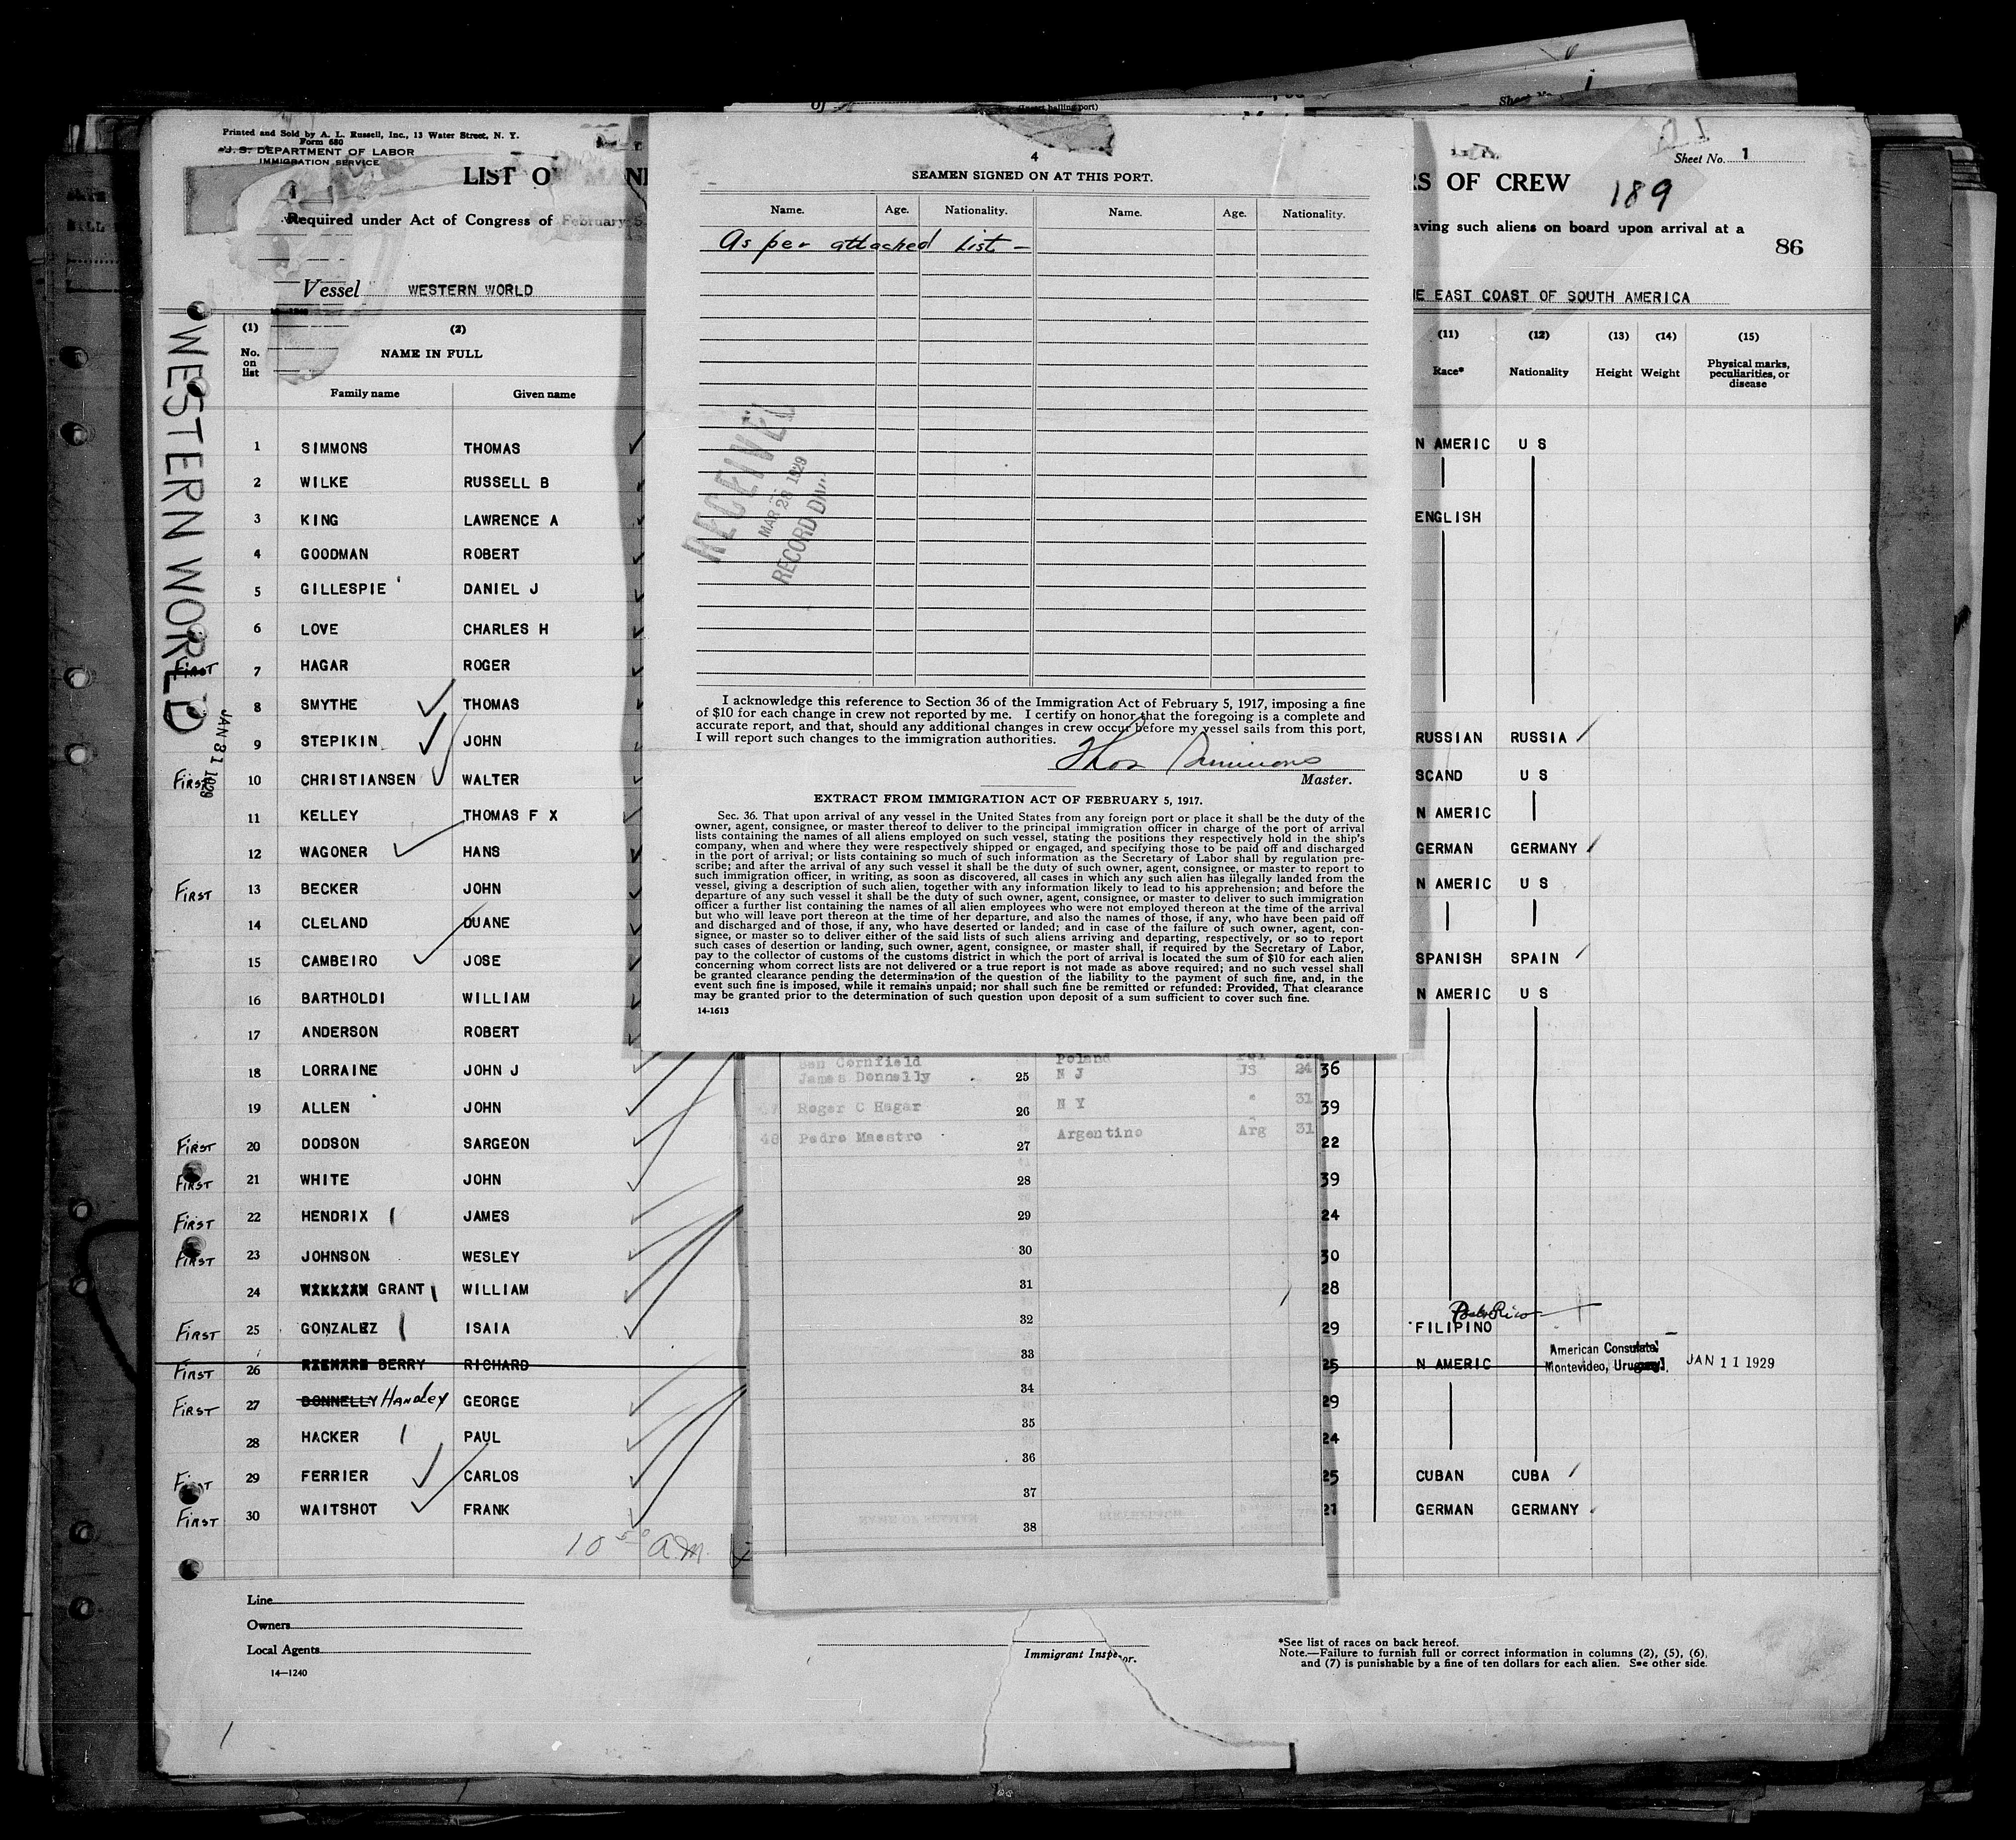 Printed and Sold by A. L. Russell, Inc., 13 Water Street, N. Y.
Form 680
U. S. DEPARTMENT OF LABOR
IMMIGRATION SERVICE
LIST O
RS OF CREW
Sheet No. 1
189
Required under Act of Congress of February 5
aving such aliens on board upon arrival at a
86
Vessel WESTERN WORLD
E EAST COAST OF SOUTH AMERICA
WESTERN WORLD
JAN 31 1929
(1) (2) (11) (12) (13) (14) (15)
No. on list NAME IN FULL Race* Nationality Height Weight Physical marks, peculiarities, or disease
Family name Given name
1 SIMMONS THOMAS N AMERIC U S
2 WILKE RUSSELL B
3 KING LAWRENCE A ENGLISH
4 GOODMAN ROBERT
5 GILLESPIE DANIEL J
6 LOVE CHARLES H
First 7 HAGAR ROGER
8 SMYTHE THOMAS
9 STEPIKIN JOHN RUSSIAN RUSSIA
First 10 CHRISTIANSEN WALTER SCAND U S
11 KELLEY THOMAS F X N AMERIC
12 WAGONER HANS GERMAN GERMANY
First 13 BECKER JOHN N AMERIC U S
14 CLELAND DUANE
15 CAMBEIRO JOSE SPANISH SPAIN
16 BARTHOLDI WILLIAM N AMERIC U S
17 ANDERSON ROBERT
18 LORRAINE JOHN J 36
19 ALLEN JOHN 39
First 20 DODSON SARGEON 22
First 21 WHITE JOHN 39
First 22 HENDRIX JAMES 24
First 23 JOHNSON WESLEY 30
24 GRANT WILLIAM 28
Porto Rico
First 25 GONZALEZ ISAIA 29 FILIPINO
First 26 BERRY RICHARD 25 N AMERIC
American Consulate
Montevideo, Uruguay. JAN 11 1929
First 27 DONNELLY Handley GEORGE 29
28 HACKER PAUL 24
First 29 FERRIER CARLOS 25 CUBAN CUBA
First 30 WAITSHOT FRANK 21 GERMAN GERMANY
10 50 a.m.
Line
Owners
Local Agents
14—1240
Immigrant Inspector.
*See list of races on back hereof.
Note.—Failure to furnish full or correct information in columns (2), (5), (6),
and (7) is punishable by a fine of ten dollars for each alien. See other side.
4
SEAMEN SIGNED ON AT THIS PORT.
Name. Age. Nationality. Name. Age. Nationality.
As per attached list —
RECEIVED
MAR 28 1929
RECORD DIV.
I acknowledge this reference to Section 36 of the Immigration Act of February 5, 1917, imposing a fine
of $10 for each change in crew not reported by me. I certify on honor that the foregoing is a complete and
accurate report, and that, should any additional changes in crew occur before my vessel sails from this port,
I will report such changes to the immigration authorities.
Thos Simmons
Master.
EXTRACT FROM IMMIGRATION ACT OF FEBRUARY 5, 1917.
Sec. 36. That upon arrival of any vessel in the United States from any foreign port or place it shall be the duty of the
owner, agent, consignee, or master thereof to deliver to the principal immigration officer in charge of the port of arrival
lists containing the names of all aliens employed on such vessel, stating the positions they respectively hold in the ship's
company, when and where they were respectively shipped or engaged, and specifying those to be paid off and discharged
in the port of arrival; or lists containing so much of such information as the Secretary of Labor shall by regulation pre-
scribe; and after the arrival of any such vessel it shall be the duty of such owner, agent, consignee, or master to report to
such immigration officer, in writing, as soon as discovered, all cases in which any such alien has illegally landed from the
vessel, giving a description of such alien, together with any information likely to lead to his apprehension; and before the
departure of any such vessel it shall be the duty of such owner, agent, consignee, or master to deliver to such immigration
officer a further list containing the names of all alien employees who were not employed thereon at the time of the arrival
but who will leave port thereon at the time of her departure, and also the names of those, if any, who have been paid off
and discharged and of those, if any, who have deserted or landed; and in case of the failure of such owner, agent, con-
signee, or master so to deliver either of the said lists of such aliens arriving and departing, respectively, or so to report
such cases of desertion or landing, such owner, agent, consignee, or master shall, if required by the Secretary of Labor,
pay to the collector of customs of the customs district in which the port of arrival is located the sum of $10 for each alien
concerning whom correct lists are not delivered or a true report is not made as above required; and no such vessel shall
be granted clearance pending the determination of the question of the liability to the payment of such fine, and, in the
event such fine is imposed, while it remains unpaid; nor shall such fine be remitted or refunded: Provided, That clearance
may be granted prior to the determination of such question upon deposit of a sum sufficient to cover such fine.
14-1613
Ben Cornfield Poland Pol
James Donnelly 25 N J US 24
Roger C Hagar 26 N Y " 31
48 Pedro Maestro 27 Argentino Arg 31
28
29
30
31
32
33
34
35
36
37
38